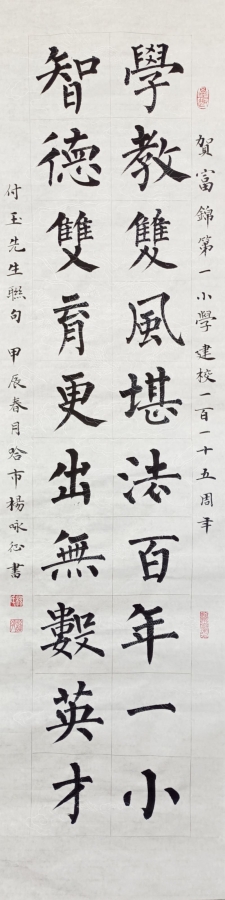 賀富錦第一小學建校一百一十五周年
學教雙風堪法百年一小
智德雙育更出無數英才
付玉先生聯句 甲辰春月哈市楊咏
書